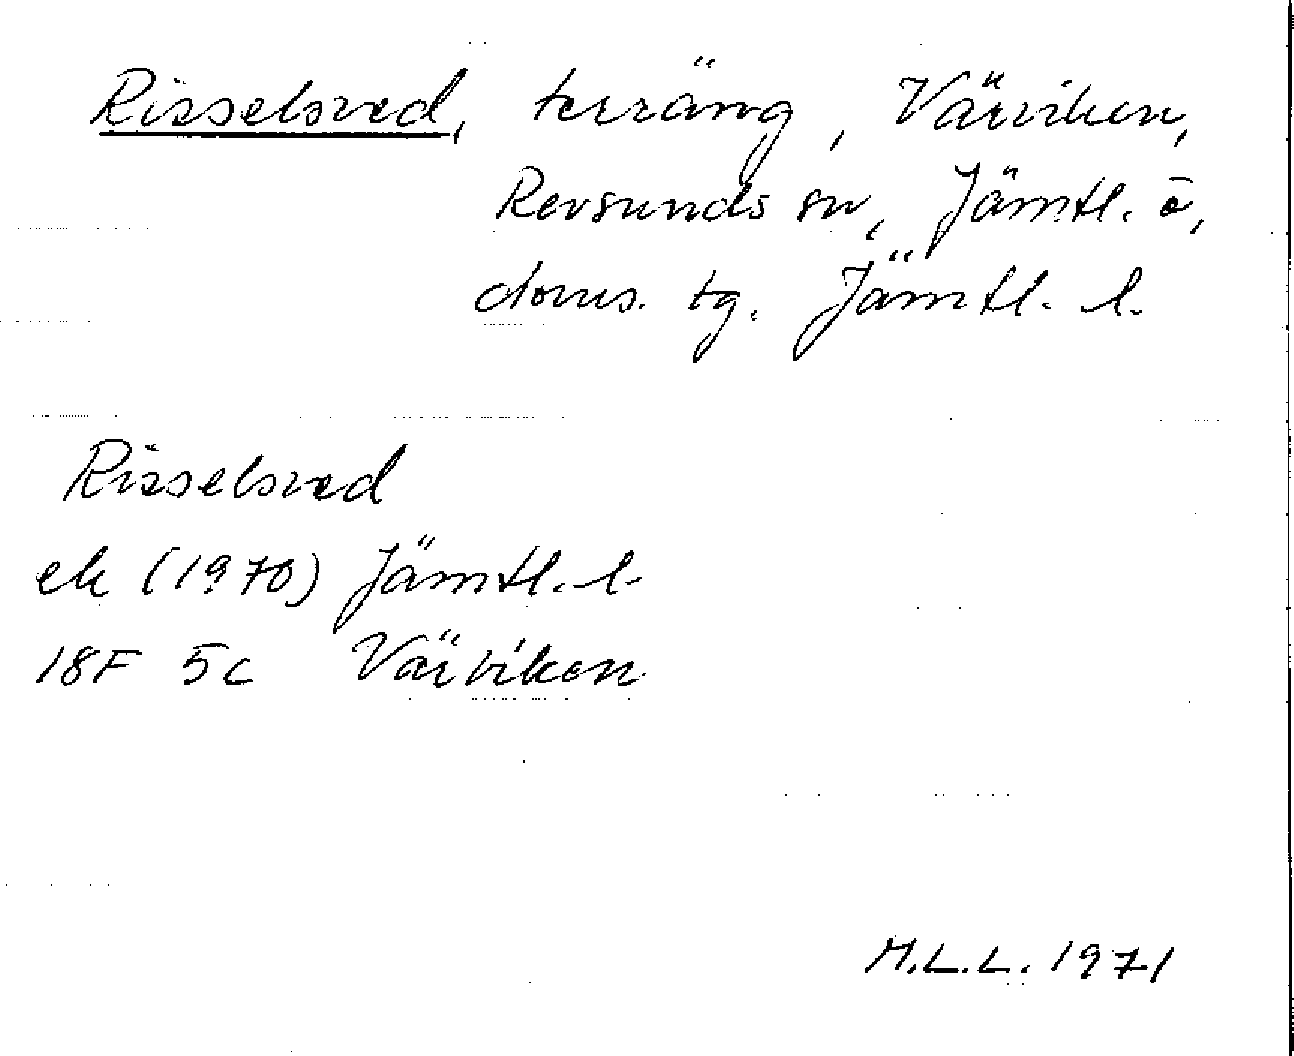 Risselsved, terräng, Värviken,
Revsunds sn, Jämtl. ö,
doms. tg. Jämtl. l.
Risselsved
ek (1970) Jämtl. l.
18F 5c Värviken
M.L.L. 1971